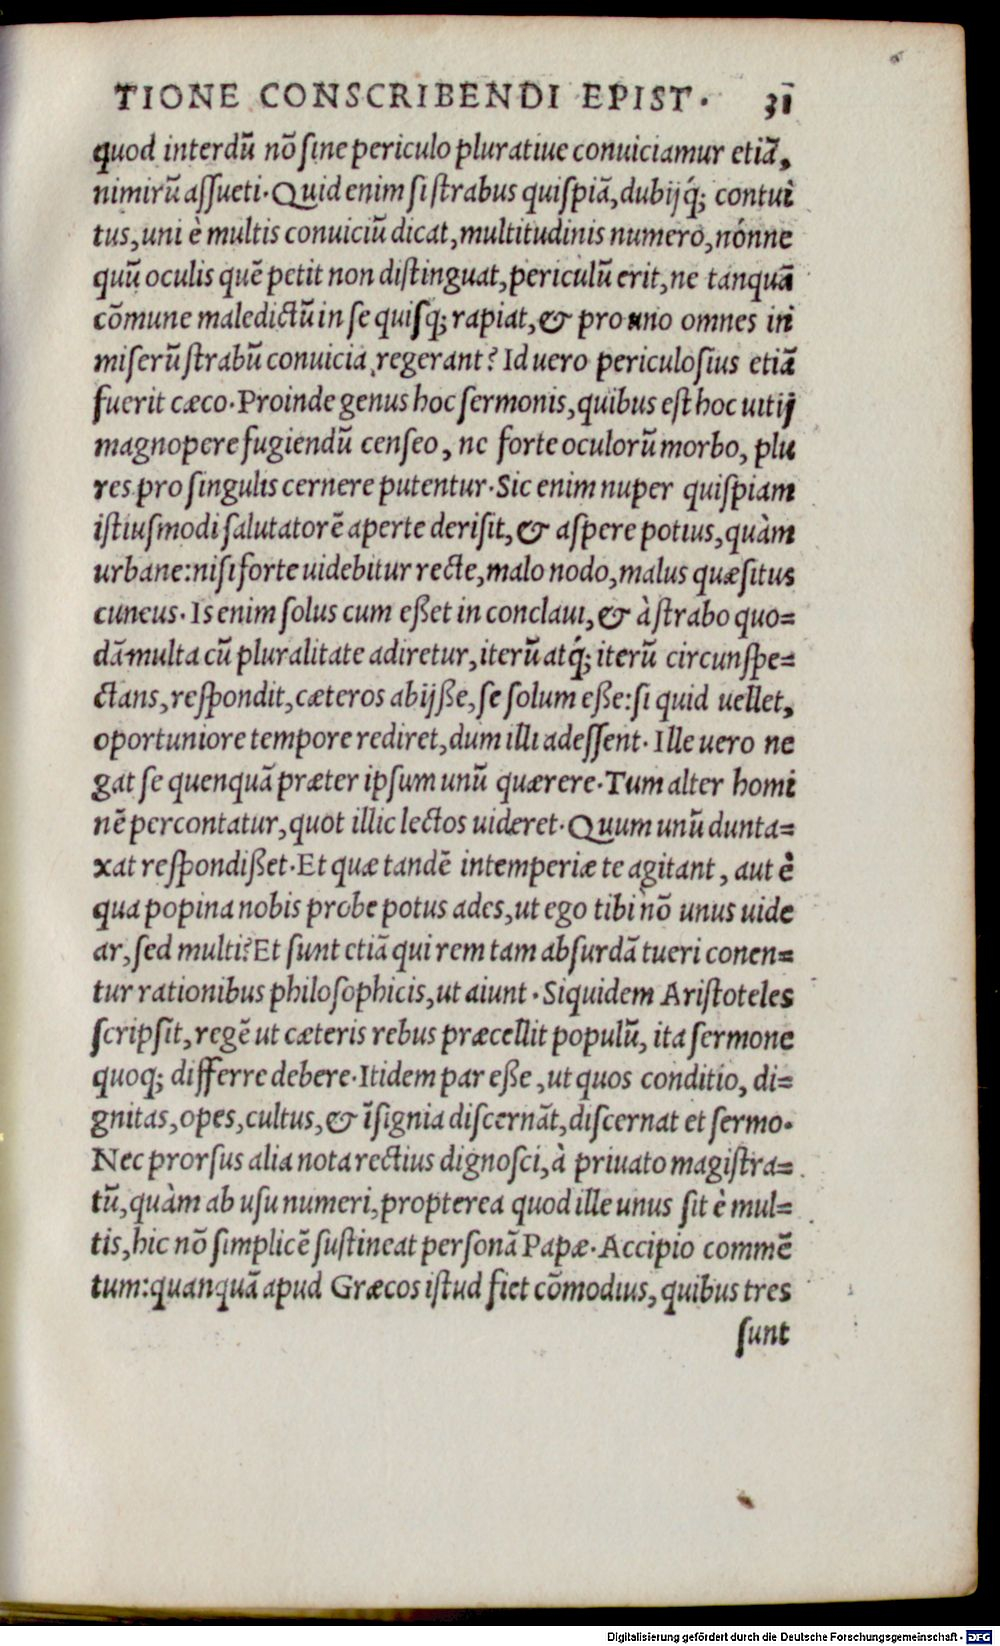 TIONE CONSCRIBENDI EPIST. 31
quod interdū nō ſine periculo pluratiue conuiciamur etiā,
nimirū aſſueti. Quid enim ſi ſtrabus quiſpiā, dubijq́; contui
tus, uni è multis conuiciū dicat, multitudinis numero, nónne
quū oculis quē petit non diſtinguat, periculū erit, ne tanquā
cōmune maledictū in ſe quiſq; rapiat, & pro uno omnes in
miſerū ſtrabū conuicia regerant? Id uero periculoſius etiā
fuerit cæco. Proinde genus hoc ſermonis, quibus eſt hoc uitij
magnopere fugiendū cenſeo, ne forte oculorū morbo, plu
res pro ſingulis cernere putentur. Sic enim nuper quiſpiam
iſtiuſmodi ſalutatorē aperte deriſit, & aſpere potius, quàm
urbane: niſi forte uidebitur recte, malo nodo, malus quæſitus
cuneus. Is enim ſolus cum eßet in conclaui, & à ſtrabo quo=
dā multa cū pluralitate adiretur, iterū atq́; iterū circunſpe=
ctans, reſpondit, cæteros abijße, ſe ſolum eße: ſi quid uellet,
oportuniore tempore rediret, dum illi adeſſent. Ille uero ne
gat ſe quenquā præter ipſum unū quærere. Tum alter homi
nē percontatur, quot illic lectos uideret. Quum unū dunta=
xat reſpondißet. Et quæ tandē intemperiæ te agitant, aut è
qua popina nobis probe potus ades, ut ego tibi nō unus uide
ar, ſed multi? Et ſunt etiā qui rem tam abſurdā tueri conen=
tur rationibus philoſophicis, ut aiunt. Siquidem Ariſtoteles
ſcripſit, regē ut cæteris rebus præcellit populū, ita ſermone
quoq; differre debere. Itidem par eße, ut quos conditio, di=
gnitas, opes, cultus, & īſignia diſcernāt, diſcernat et ſermo.
Nec prorſus alia nota rectius dignoſci, à priuato magiſtra=
tū, quàm ab uſu numeri, propterea quod ille unus ſit è mul=
tis, hic nō ſimplicē ſuſtineat perſonā Papæ. Accipio commē
tum: quanquā apud Græcos iſtud fiet cōmodius, quibus tres
ſunt
Digitalisierung gefördert durch die Deutsche Forschungsgemeinschaft - DFG